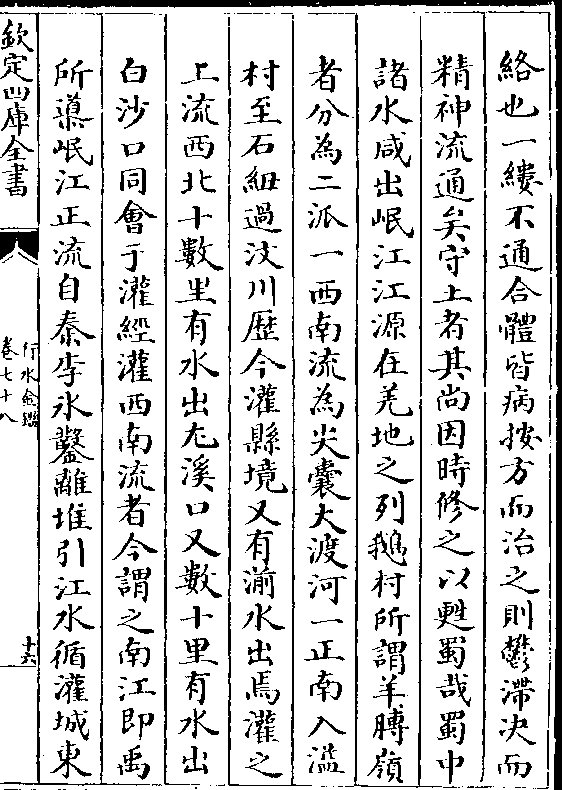 絡也一縷不通合體皆病按方而治之則鬱滯决而
精神流通矣守土者其尚因時修之以甦蜀哉蜀中
諸水咸出岷江江源在羌地之列鵝村所謂羊膊嶺
者分為二派一西南流為尖囊大渡河一正南入溢
村至石紐過汶川歴今灌縣境又有湔水出焉灌之
上流西北十數里有水出尤溪口又數十里有水出
白沙口同會于灌經灌西南流者今謂之南江即禹
所導岷江正流自秦李氷鑿離堆引江水循灌城東
欽定四庫全書
行水金鑑
卷七十八
十六